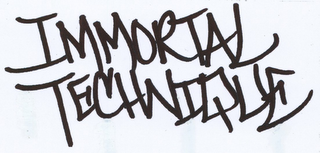 IMMORTAL
TECHNIQUE